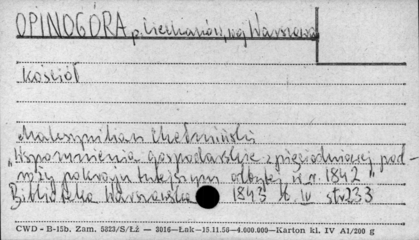 OPINOGÓRA p. Ciechanów, woj Warszawa
Kościół
Maksymilian Chełmiński
„Wspomnienia gospodarskie z pięciodniowej pod-
róży po kraju tutejszym odbytej w r. 1842"
Biblioteka Warszawska 1843 t. IV str 233
CWD - B-15b. Zam. 5823/S/ŁŻ — 3016—Łak—15.11.56—4.000.000—Karton kl. IV A1/200 g